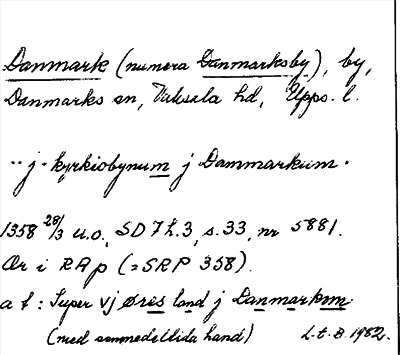 Danmark (numera Danmarksby), by,
Danmarks sn, Vaksala hd, Upps. l.
·· j kyrkiobynum j Danmarkum.
1358 28/3 u.o., SD 7 h.3, s.33, nr 5881.
Or i RAp (=SRP 358).
a t: Super vj øres land j Danmarkum
(med senmedeltida hand) L.t.B. 1982.